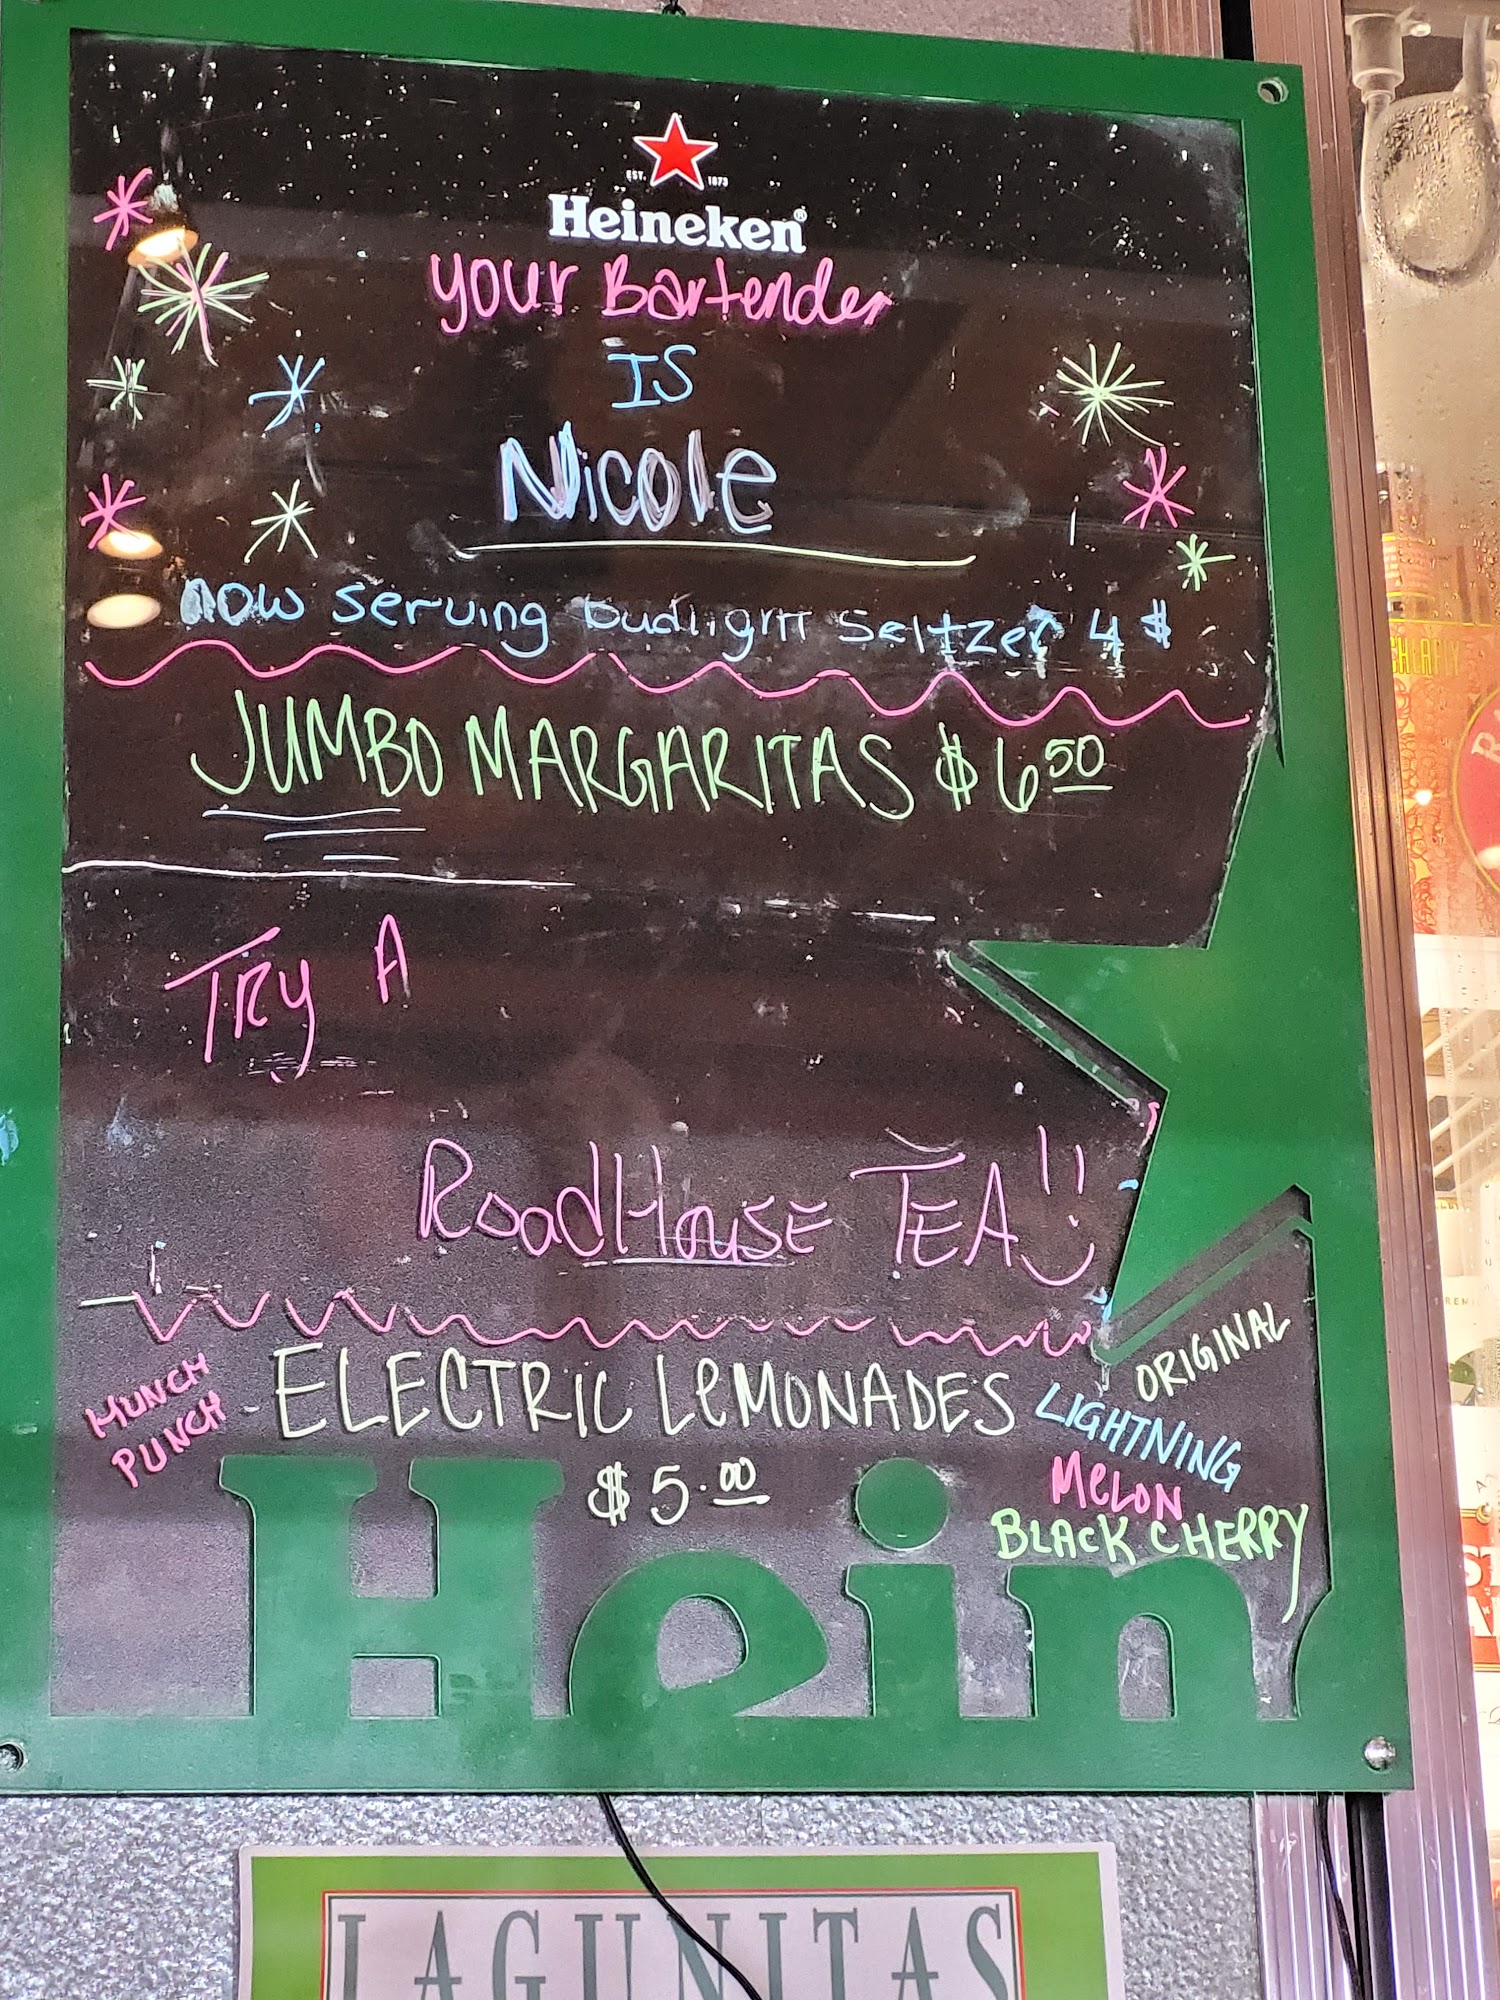 EST. 1873
Heineken®
your Bartender
IS
Nicole
now serving budlight Seltzer 4 $
JUMBO MARGARITAS $ 6 50
TRY A
RoadHouse TEA!!
HUNCH
PUNCH
- ELECTRiC LeMONADES
$ 5.00
ORIGINAL
LIGHTNING
MeLON
BLACK CHERRY
Hein
LAGUNITAS